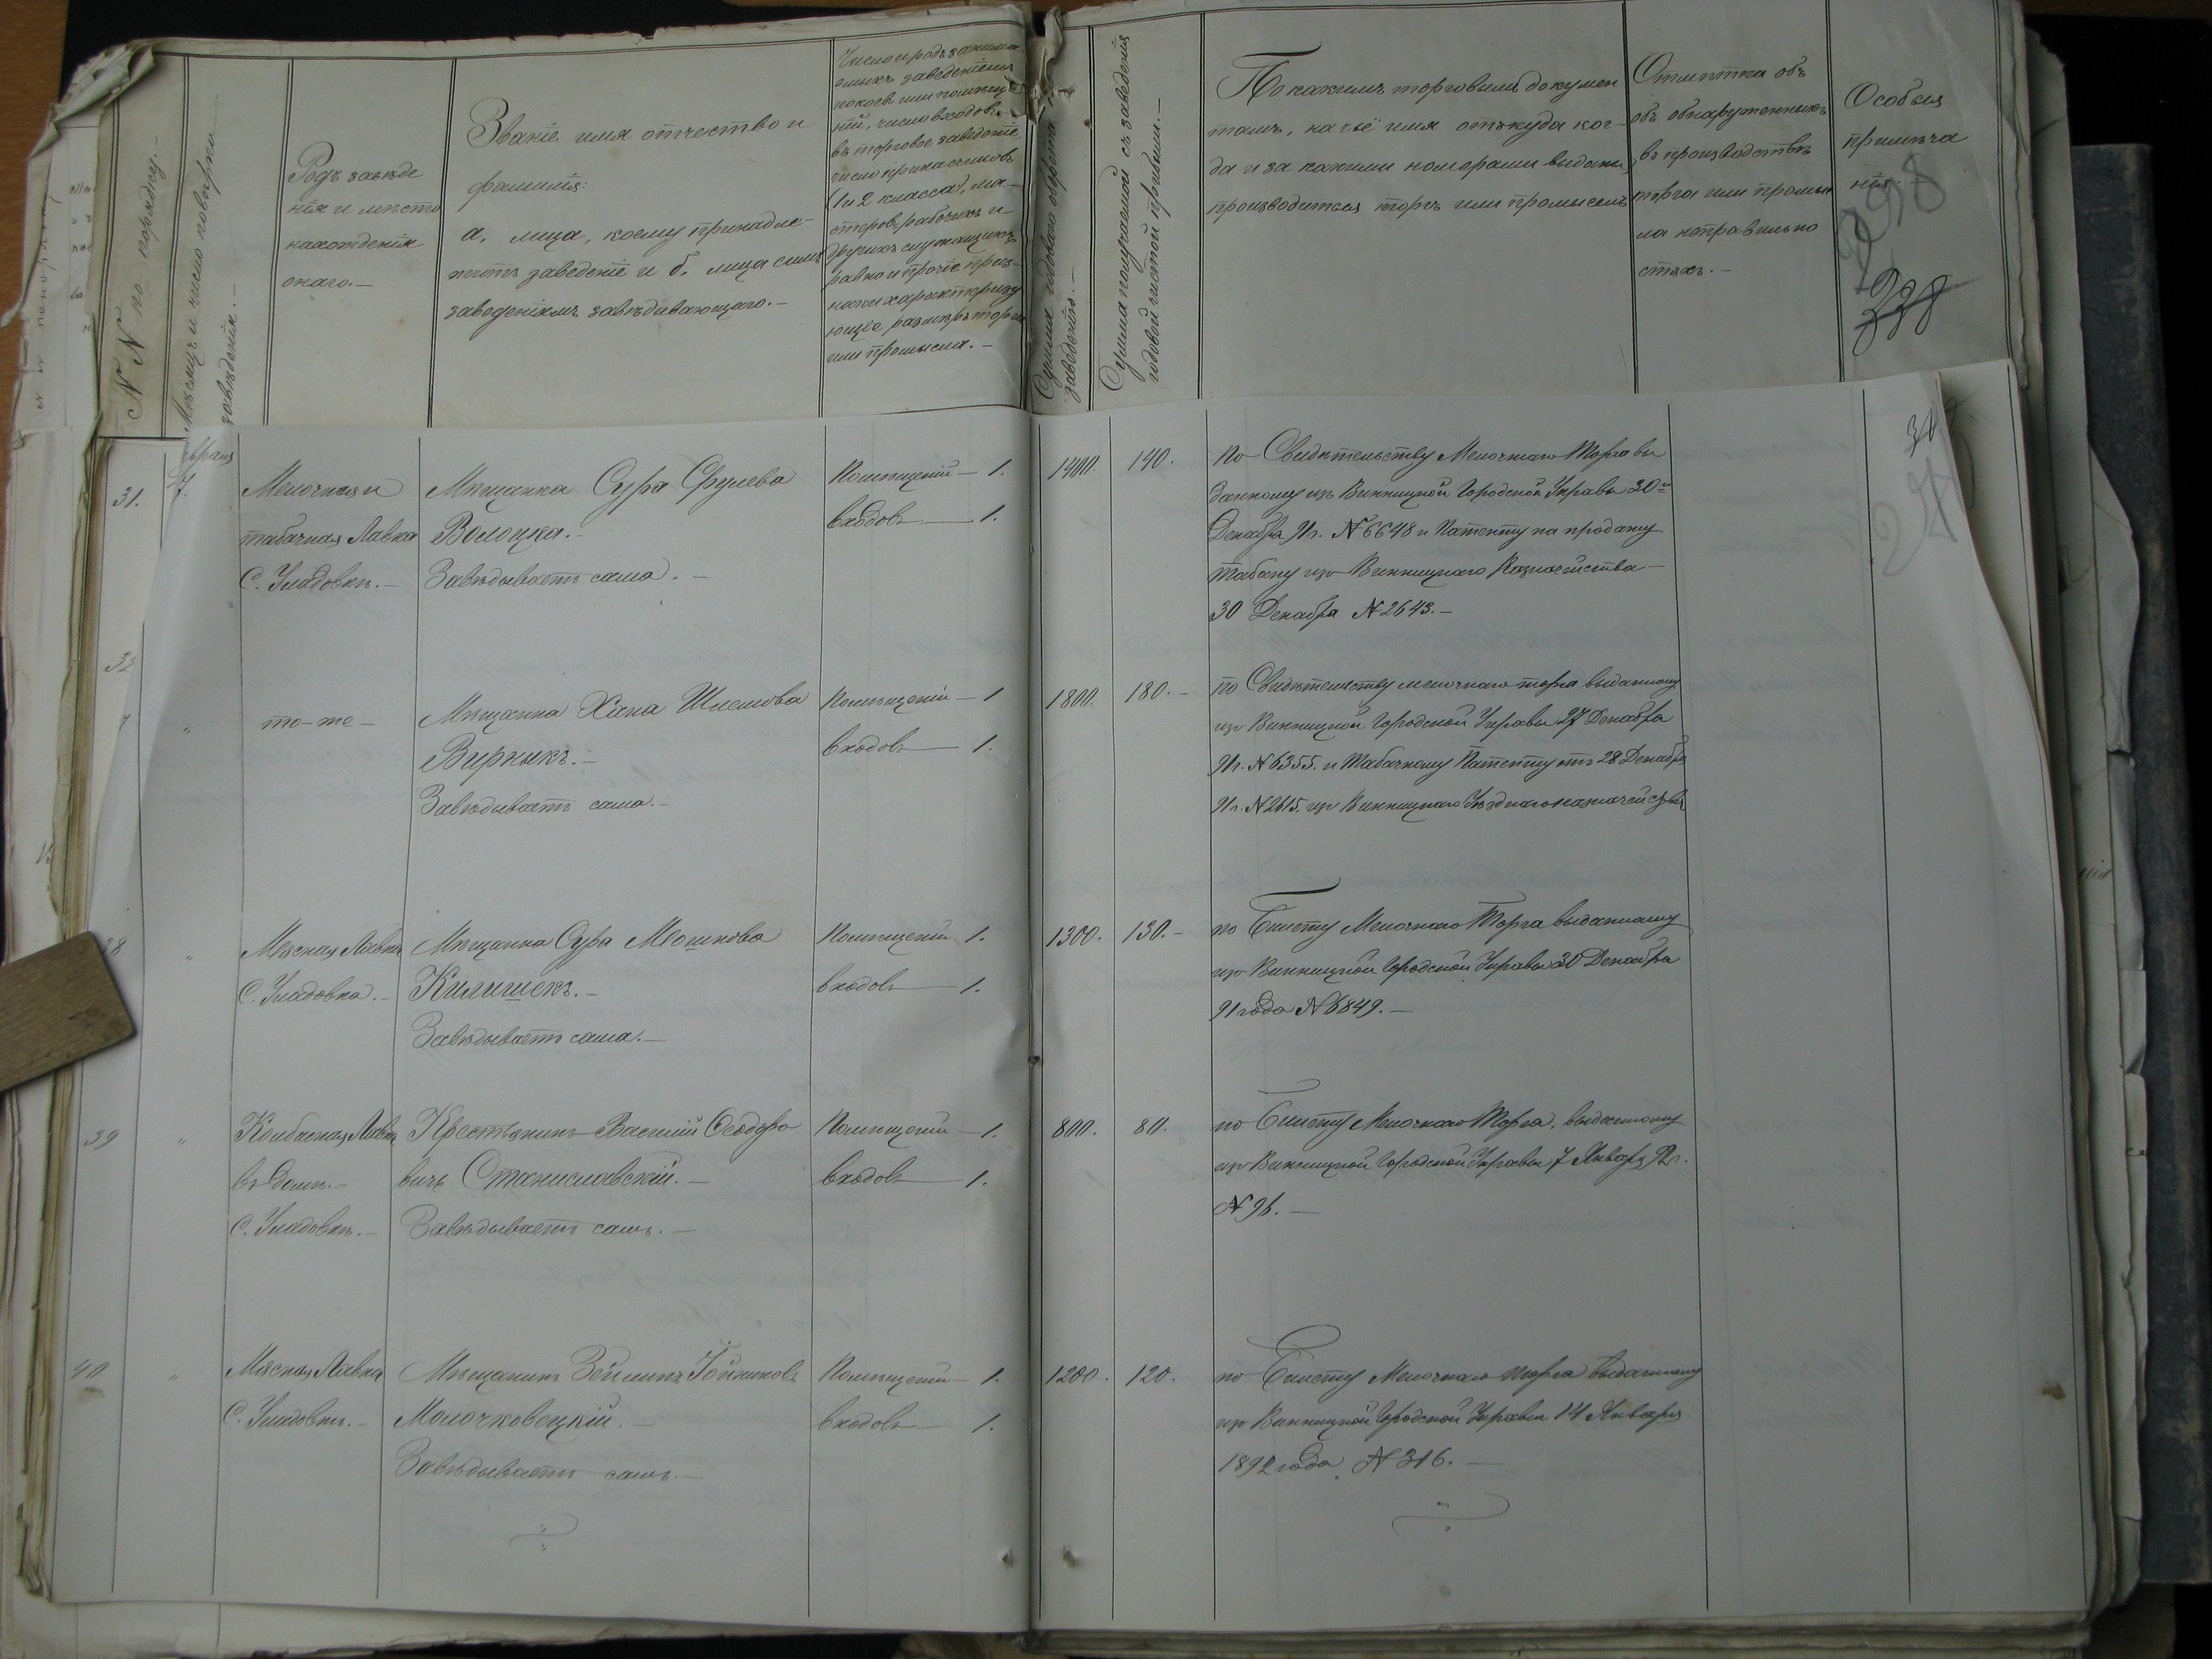 N N по порядку. —
Мѣсяцъ и число повѣрки
заведенія. —
Родъ заведе
нія и мѣсто
нахожденія
онаго. —
Званіе имя отчество и
фамилія:
а, лица, коему принадле-
житъ заведеніе и б, лица симъ
заведеніемъ завѣдывающаго. —
Число и родъ занима
емыхъ заведеніемъ
покоевъ или помѣще
ній, число входовъ
въ торговое заведеніе
число прикащиковъ
(1 и 2 класса), ма-
стеровъ, рабочихъ и
другихъ служащихъ
равно и прочіе приз-
наки характеризу
ющіе размѣръ торга
или промысла. —
Сумма годоваго оборота по
заведенію. —
Сумма получаемой съ заведенія
годовой чистой прибыли. —
По какимъ торговымъ докумен
тамъ, на чьё имя откуда ког-
да и за какими номерами выданы
производится торгъ или промыселъ
Отмѣтка объ
объ обнаруженныхъ
въ производствѣ
торга или промы
ла неправильно
стяхъ. —
Особыя
примѣча
нія.
298
31.
7.
Мелочная и
табачная Лавка
С. Уладовкѣ. —
Мѣщанка Сура Срулева
Волоцка. —
Завѣдываетъ сама. —
Помѣщеній — 1.
входовъ — 1.
1400.
140.
по Свидѣтельству Мелочнаго Торга вы
данному изъ Винницкой Городской Управы 30го
Декабря 91г. N 6648 и Патенту на продажу
табаку изъ Винницкаго Казначейства —
30 Декабря N 2643. —
32
7
"
то-же —
Мѣщанка Хана Шлемова
Вирникъ. —
Завѣдываетъ сама. —
Помѣщеній — 1
входовъ — 1.
1800.
180. —
по Свидѣтельству мелочнаго торга выданному
изъ Винницкой Городской Управы 27 Декабря
91г. N 6355. и Табачному Патенту отъ 28 Декабря
91г. N 2615. изъ Винницкаго Уѣзднаго казначейства
38.
"
Мясная Лавка
С. Уладовка. —
Мѣщанка Сура Мошкова
Килишекъ. —
Завѣдываетъ сама. —
Помѣщеній 1.
входовъ — 1.
1300.
130. —
по Билету Мелочнаго Торга выданному
изъ Винницкой Городской Управы 30 Декабря
91 года N 6849. —
39
"
Колбасная Лавка
въ домѣ. —
С. Уладовкѣ. —
Крестьянинъ Василій Ѳеодоро
вичъ Станиславскій. —
Завѣдываетъ самъ. —
Помѣщеній — 1.
входовъ — 1.
800.
80.
по Билету Мелочнаго Торга, выданному
изъ Винницкой Городской Управы 7 Января 92г.
N 96. —
40
"
Мясная Лавка
С. Уладовкѣ. —
Мѣщанинъ Зейлихъ Гойниковъ
Молочковецкій. —
Завѣдываетъ самъ. —
Помѣщеній — 1.
входовъ — 1.
1200.
120.
по Билету Мелочнаго торга выданному
изъ Винницкой Городской Управы 14 Января
1892 года N 316. —